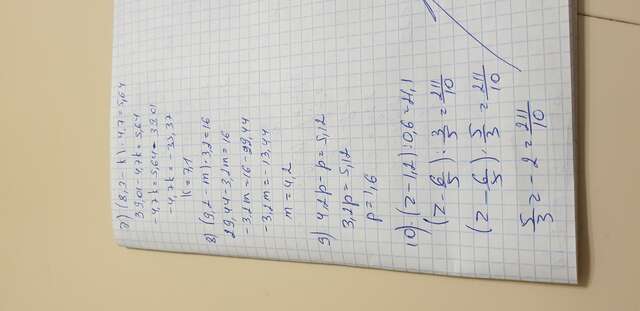 7) (8,3 - k) · 4,7 = 5,64
39,01 - 4,7k = 5,64
-4,7k = 5,64 - 39,01
-4,7k = -33,37
k = 7,1
8) (9,2 - m) · 3,2 = 16
29,44 - 3,2m = 16
-3,2m = 16 - 29,44
-3,2m = -13,44
m = 4,2
9) 4,2p - p = 5,12
3,2p = 5,12
p = 1,6
10) (z - 1,2) : 0,6 = 21,1
(z - 6/5) : 3/5 = 211/10
(z - 6/5) · 5/3 = 211/10
5/3 z - 2 = 211/10